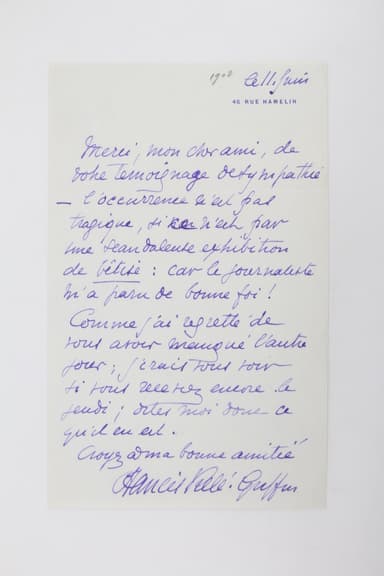 1908
le 11. Juin
46 RUE HAMELIN
Merci, mon cher ami, de
votre temoignage de sympathie
— l'occurrence n'est pas
tragique, si ce n'est par
une scandaleuse exhibition
de bêtise : car le journaliste
m'a paru de bonne foi !
Comme j'ai regretté de
vous avoir manqué l'autre
jour ; j'irais vous voir
si vous recevez encore le
jeudi ; dites moi donc ce
qu'il en est.
Croyez à ma bonne amitié
Francis Vielé-Griffin